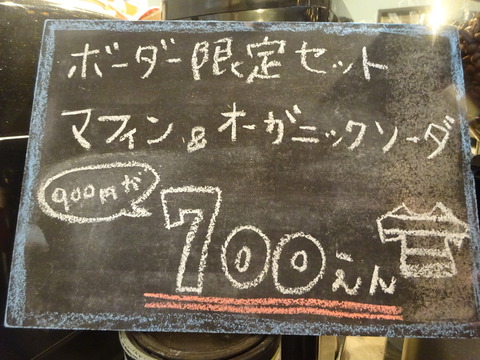 ボーダー限定セット
マフィン&オーガニックソーダ
900円が
700えん